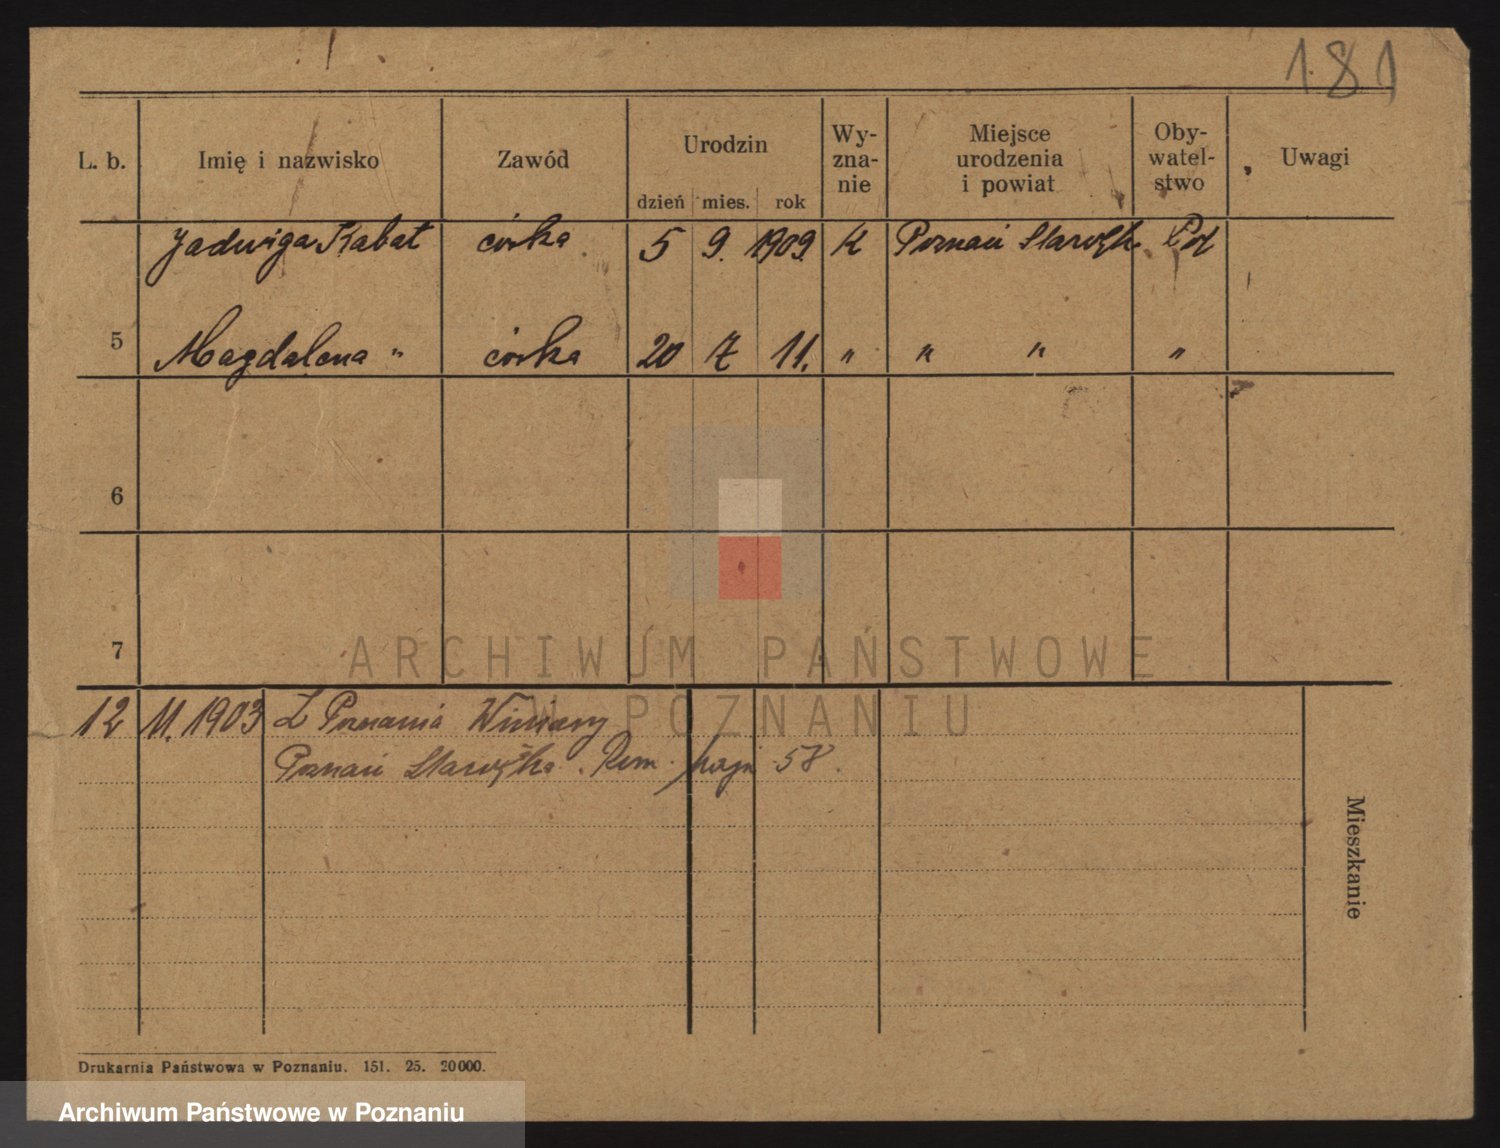 181
L. b. Imię i nazwisko Zawód Urodzin dzień mies. rok Wy-zna-nie Miejsce urodzenia i powiat Oby-watel-stwo Uwagi
Jadwiga Kabat córka 5 9. 1909. K Poznań Starołęk. Pol
5 Magdalena " córka 20 7 11. " " " "
6
7
ARCHIWUM PAŃSTWOWE
W POZNANIU
12 11. 1903 Z Poznania Winiary
Poznań Starołęka. 58.
Mieszkanie
Drukarnia Państwowa w Poznaniu. 151. 25. 20000.
Archiwum Państwowe w Poznaniu